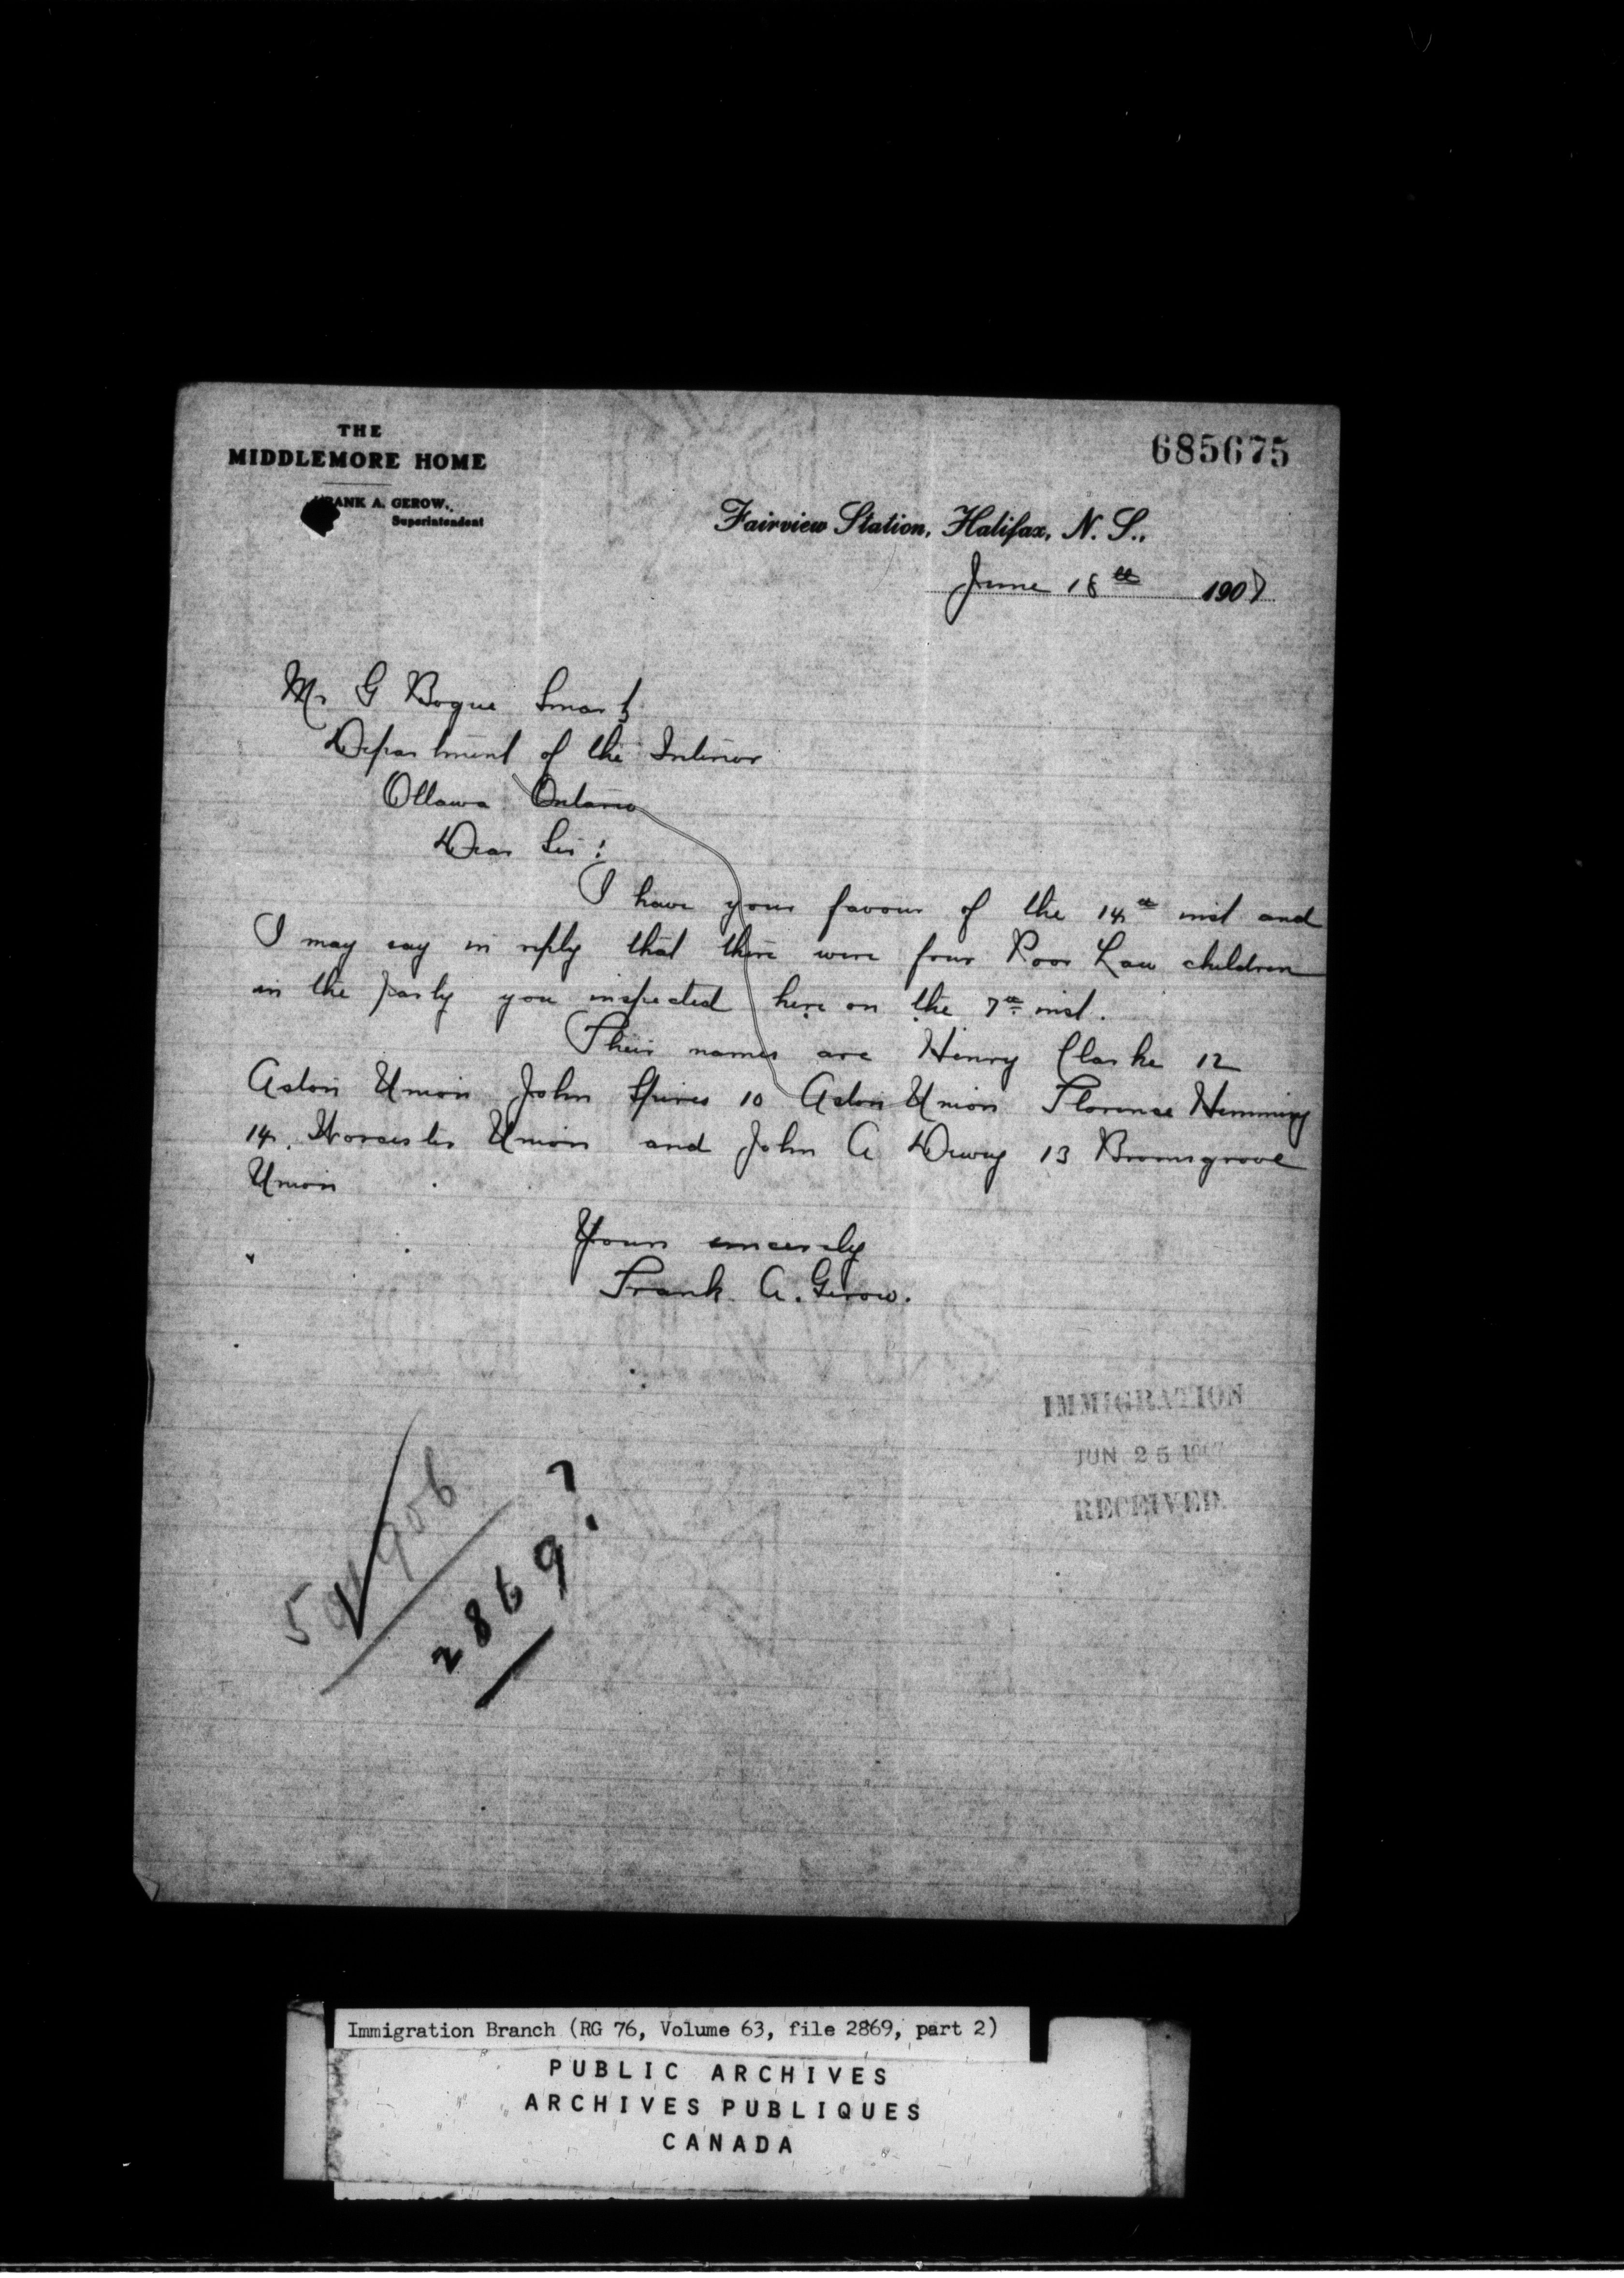 THE
MIDDLEMORE HOME
FRANK A. GEROW,
Superintendent
685675
Fairview Station, Halifax, N. S.,
June 18th 1907
Mr G Bogue Smart
Department of the Interior
Ottawa Ontario
Dear Sir:
I have your favour of the 14th inst and
I may say in reply that there were four Poor Law children
in the party you inspected here on the 7th inst.
Their names are Henry Clarke 12
Aston Union John Spires 10 Aston Union Florence Hemming
14, Worcester Union and John A Dewey 13 Bromsgrove
Union
Yours sincerely
Frank A. Gerow.
IMMIGRATION
JUN 25 1907
RECEIVED.
2869?
Immigration Branch (RG 76, Volume 63, file 2869, part 2)
PUBLIC ARCHIVES
ARCHIVES PUBLIQUES
CANADA